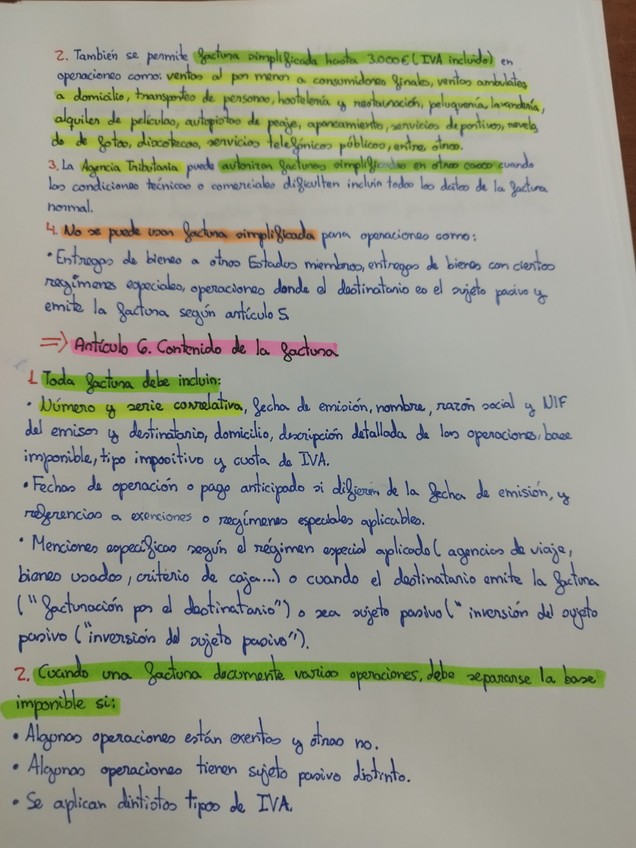 2. También se permite factura simplificada hasta 3.000€ (IVA incluido) en
operaciones como: ventas al por menor a consumidores finales, ventas ambulates
a domicilio, transportes de personas, hostelería y restauración, peluquería, lavandería,
alquiler de películas, autopistas de peaje, aparcamiento, servicios deportivos, revela
do de fotos, discotecas, servicios telefónicos públicos, entre otros.
3. La Agencia Tributaria puede autorizar facturas simplificadas en otros casos cuando
las condiciones técnicas o comerciales dificulten incluir todos los datos de la factura
normal.
4. No se puede usar factura simplificada para operaciones como:
• Entregas de bienes a otros Estados miembros, entregas de bienes con ciertos
regímenes especiales, operaciones donde el destinatario es el sujeto pasivo y
emite la factura según artículo 5.
=> Artículo 6. Contenido de la factura
1. Toda factura debe incluir:
• Número y serie correlativa, fecha de emisión, nombre, razón social y NIF
del emisor y destinatario, domicilio, descripción detallada de las operaciones, base
imponible, tipo impositivo y cuota de IVA.
• Fechas de operación o pago anticipado si difieren de la fecha de emisión, y
referencias a exenciones o regímenes especiales aplicables.
• Menciones específicas según el régimen especial aplicado (agencias de viaje,
bienes usados, criterio de caja...) o cuando el destinatario emite la factura
("facturación por el destinatario") o sea sujeto pasivo (" inversión del sujeto
pasivo ("inversión del sujeto pasivo").
2. Cuando una factura documente varias operaciones, debe separarse la base
imponible si:
• Algunas operaciones están exentas y otras no.
• Algunas operaciones tienen sujeto pasivo distinto.
• Se aplican dintistos tipos de IVA.